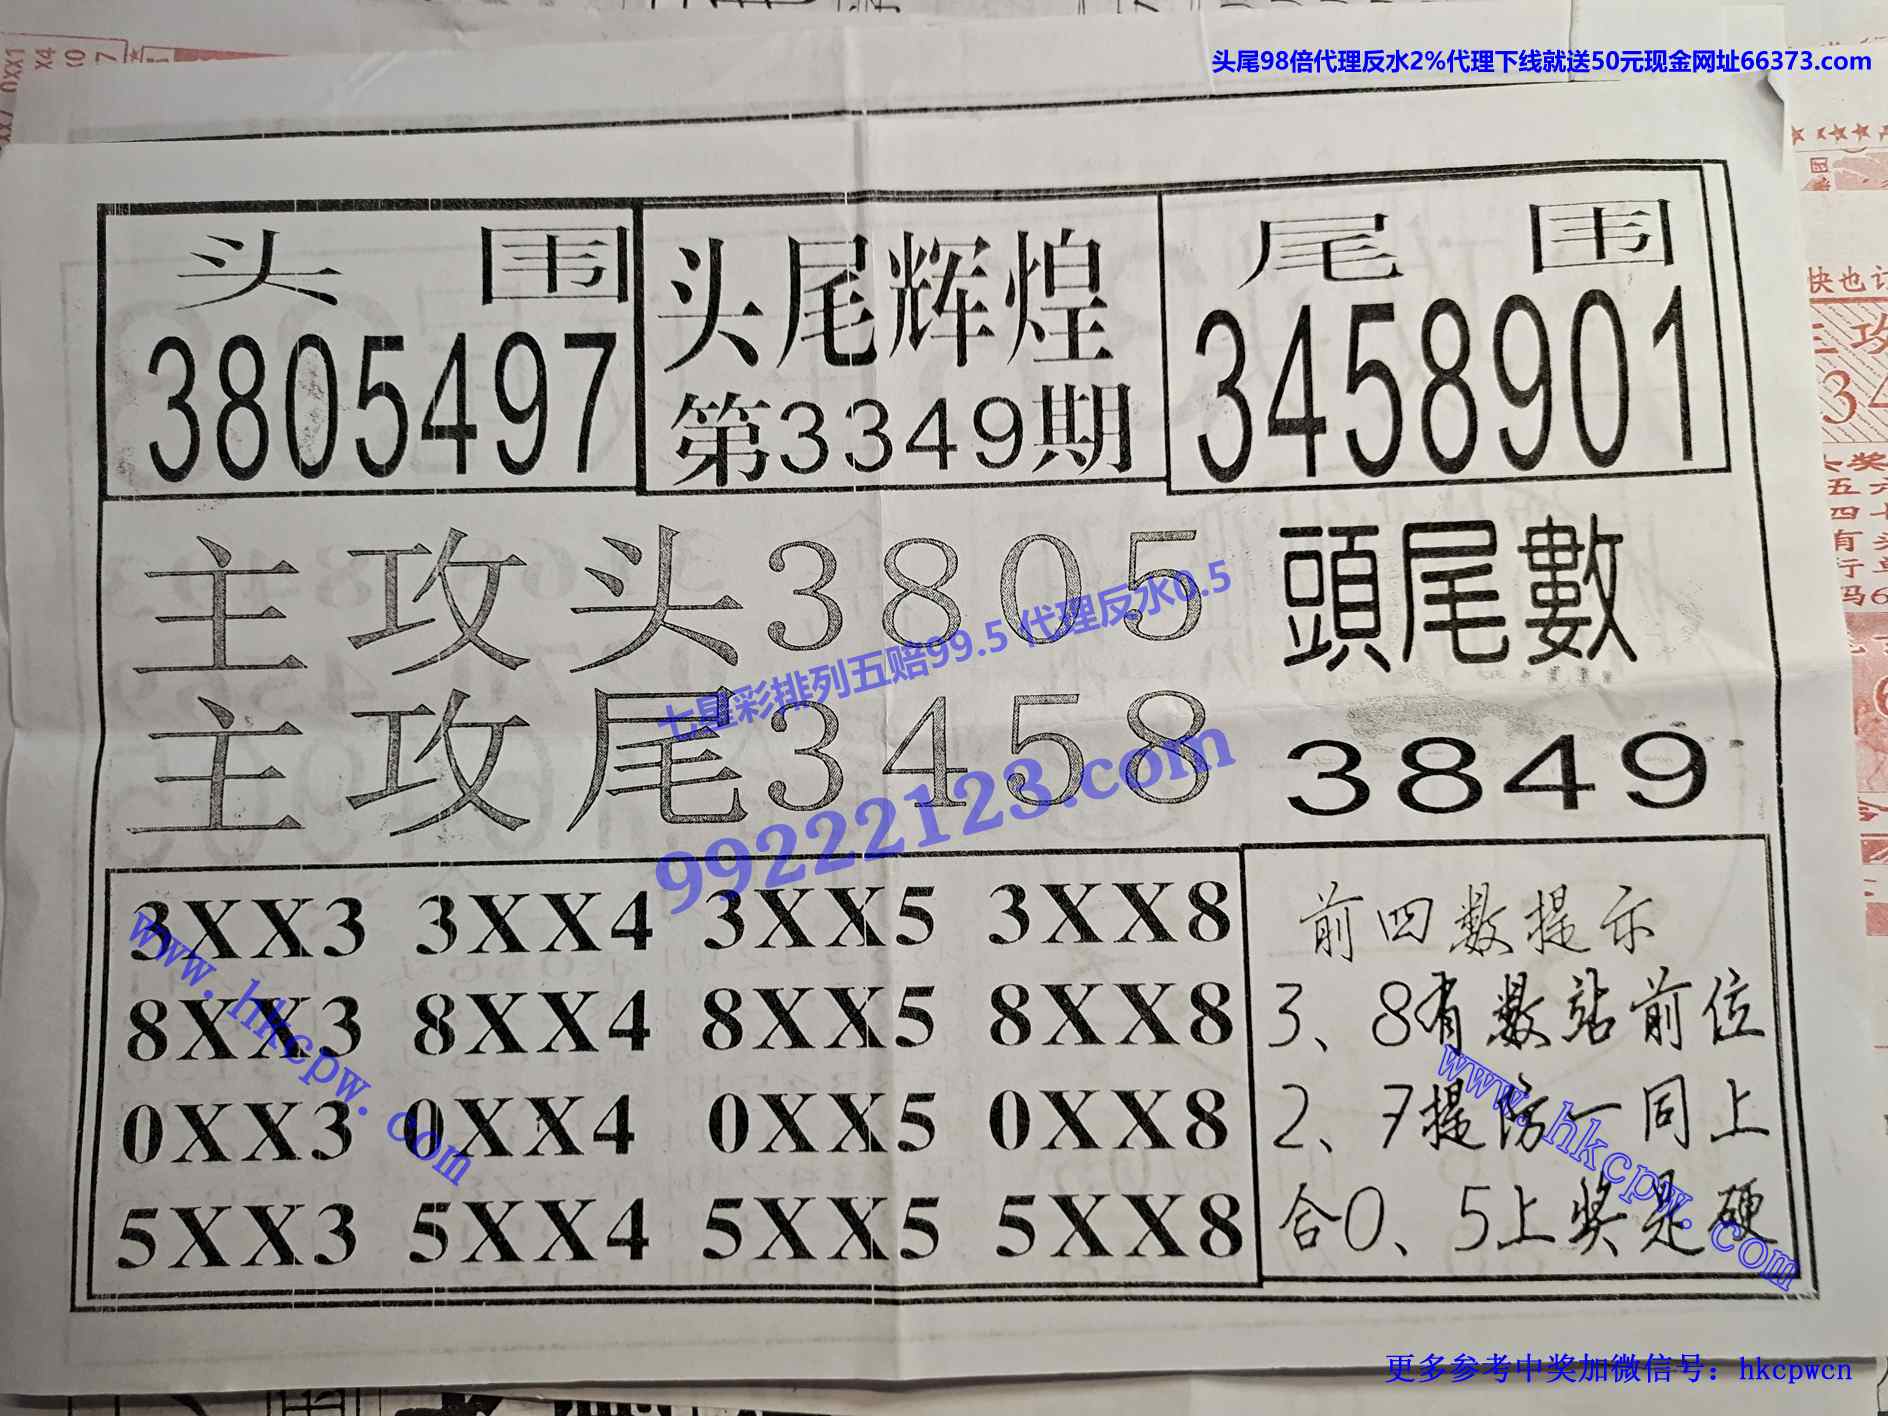 头尾98倍代理反水2%代理下线就送50元现金网址66373.com
头围
3805497
头尾辉煌
第3349期
尾围
3458901
主攻头3805
主攻尾3458
頭尾數
3849
七星彩排列五赔99.5 代理反水0.5
99222123.com
3XX3 3XX4 3XX5 3XX8
8XX3 8XX4 8XX5 8XX8
0XX3 0XX4 0XX5 0XX8
5XX3 5XX4 5XX5 5XX8
www.hkcpw.com
前四数提示
3、8有数站前位
2、7提防一同上
合0、5上奖是硬
www.hkcpw.com
更多参考中奖加微信号：hkcpwcn